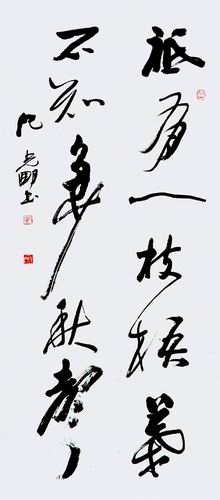 祗有一枝梧葉
不知多少秋聲